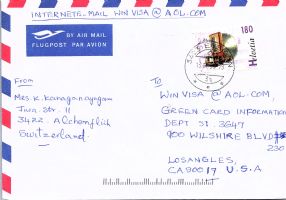 INTERNETE-MAIL WIN VISA @ AOL-COM
BY AIR MAIL
FLUGPOST PAR AVION
180
Helvetia
From
Mrs. K. Kanaganayagam
Jura. Str. 11
3422. Alchenflüh
Switzerland.
To
WIN VISA @ AOL-COM,
GREEN CARD INFORMATION
DEPT SI 3647
900 WILSHIRE BLVD#
230
LOSANGLES,
CA 90017 U.S.A